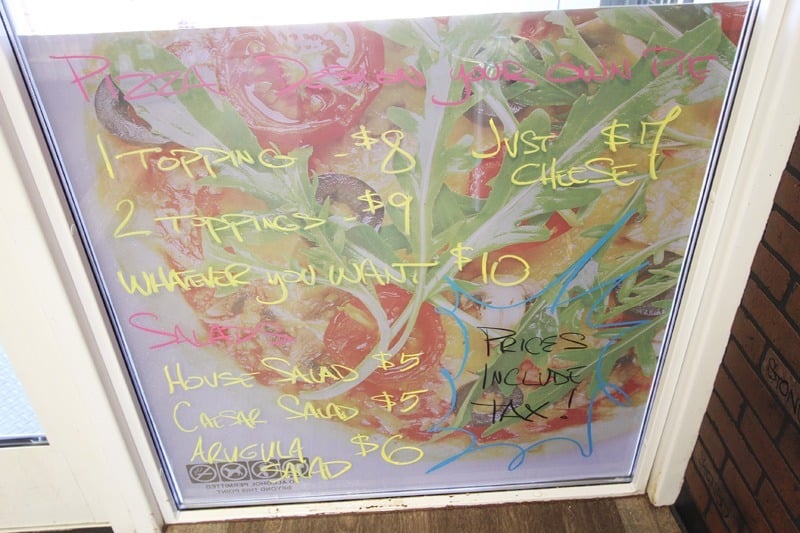 PIZZA - DESIGN YOUR OWN PIE
1 TOPPING - $8
JUST CHEESE $7
2 TOPPINGS - $9
WHATEVER YOU WANT $10
SALADS
HOUSE SALAD $5
CAESAR SALAD $5
ARUGULA SALAD $6
PRICES
INCLUDE
TAX!
NO ALCOHOL PERMITTED
BEYOND THIS POINT